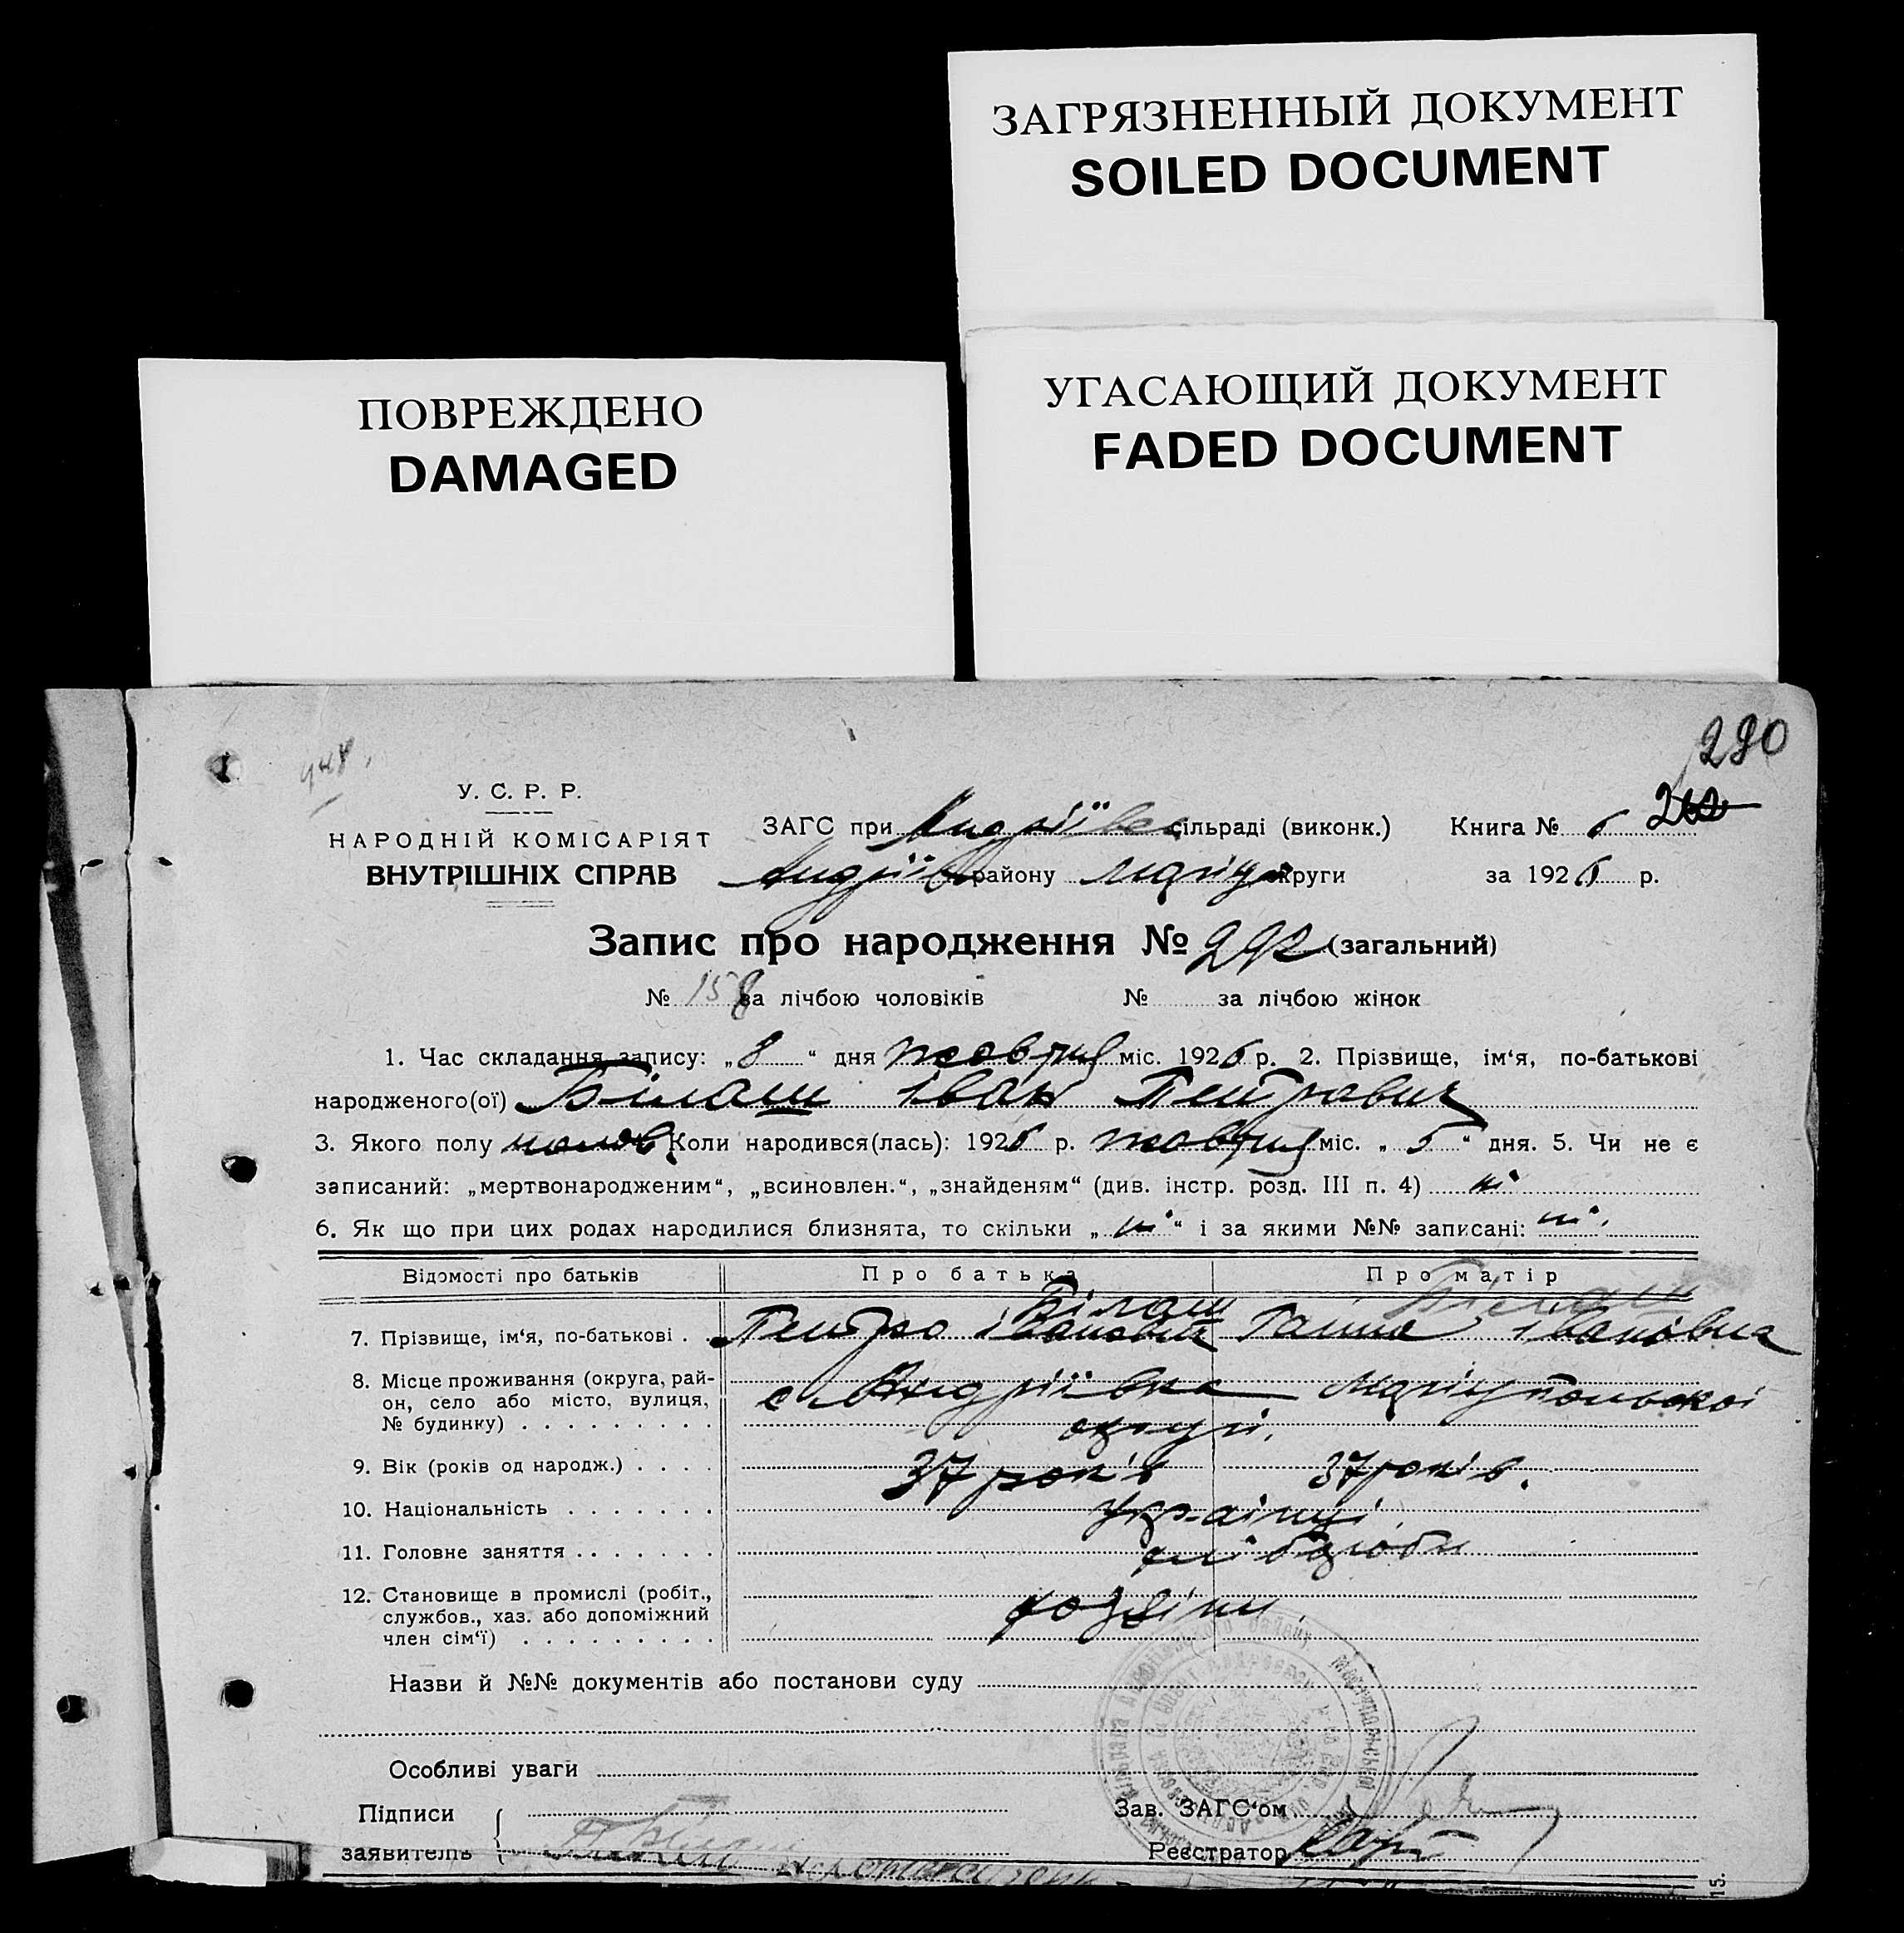 ЗАГРЯЗНЕННЫЙ ДОКУМЕНТ
SOILED DOCUMENT
УГАСАЮЩИЙ ДОКУМЕНТ
FADED DOCUMENT
ПОВРЕЖДЕНО
DAMAGED
У. С. Р. Р.
НАРОДНІЙ КОМІСАРІЯТ
ВНУТРІШНІХ СПРАВ
ЗАГС при Андріївс сільраді (виконк.)
Андріїв району Маріуп округи
Книга № 6 262
за 1926 р.
Запис про народження № 292 (загальний)
№ 158 за лічбою чоловіків № за лічбою жінок
1. Час складання запису: „8“ дня жовтня міс. 1926 р. 2. Прізвище, ім‘я, по-батькові
народженого(ої) Білаш Іван Петрович
3. Якого полу чолов. Коли народився(лась): 1926 р. жовтня міс. „5“ дня. 5. Чи не є
записаний: „мертвонародженим“, „всиновлен.“, „знайденям“ (див. інстр. розд. III п. 4) ні
6. Як що при цих родах народилися близнята, то скільки „ні“ і за якими №№ записані: ні.
Відомості про батьків Про батька Про матір
Білаш Білаш
7. Прізвище, ім‘я, по-батькові . . Петро Іванович Ганна Івановна
8. Місце проживання (округа, рай-
он, село або місто, вулиця, с Андріївка Маріупольської
№ будинку) . . . . . . . . . округи.
9. Вік (років од народж.) . . . . 37 років 37 років.
10. Національність . . . . . . . Українці.
11. Головне заняття . . . . . . . хлібороби
12. Становище в промислі (робіт.,
службов., хаз. або допоміжний хозяїни
член сім‘ї) . . . . . . . . .
Назви й №№ документів або постанови суду
Особливі уваги
Підписи
заявителів
П Білаш
Зав. ЗАГС‘ом
Реєстратор
15.